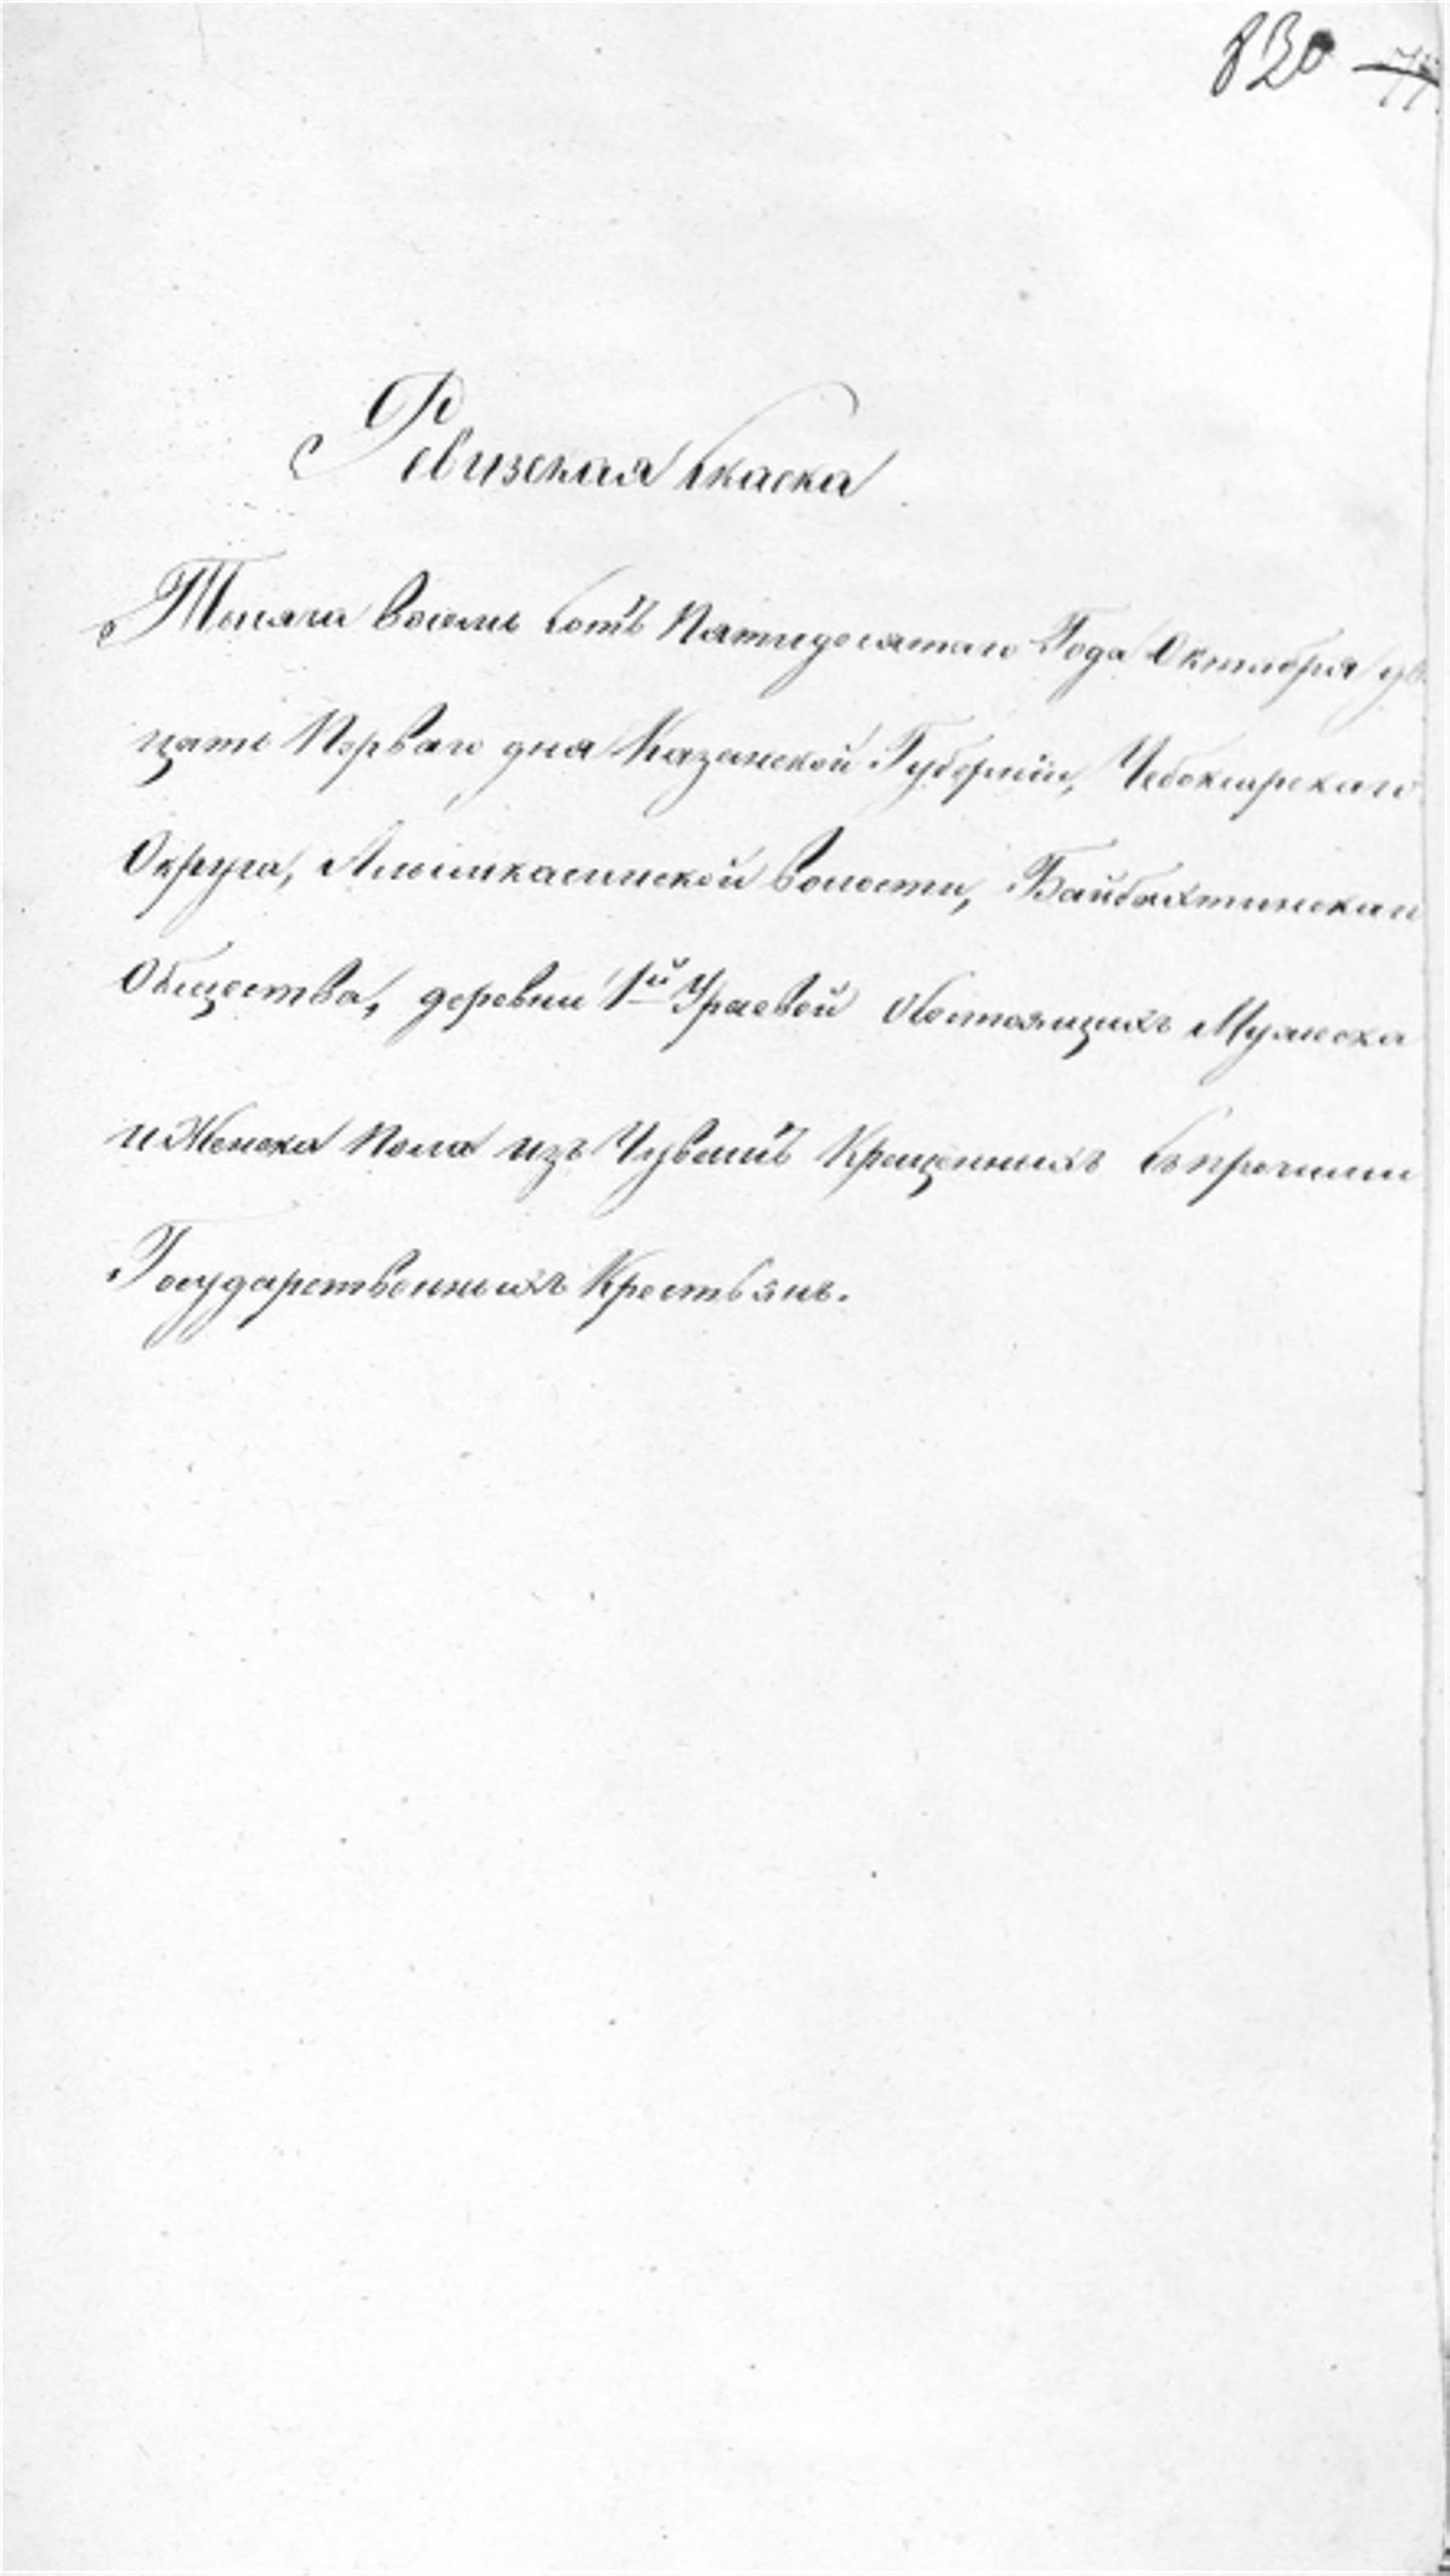 830
Ревизская скаска
Тысяча восемь сотъ Пятидесятаго Года Октября дв
цать Перваго дня Казанской Губерніи, Чебоксарскаго
Округа, Алымкасинской волости, Байбахтинскаго
Общества, деревни 1й Ураевой Состоящихъ Мужеска
и Женска Пола изъ Чувашъ Крещенныхъ Спрочими
Государственныхъ Крестьянъ.